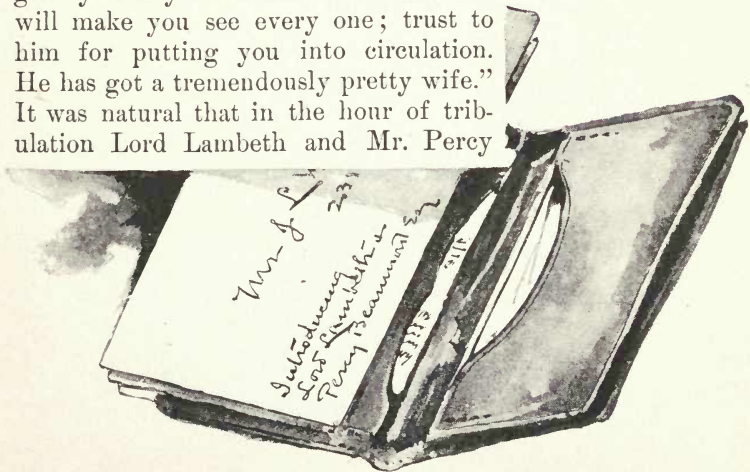 will make you see every one; trust to
him for putting you into circulation.
He has got a tremendously pretty wife.”
It was natural that in the hour of trib-
ulation Lord Lambeth and Mr. Percy
Mr J
Introducing
Lord Lambeth &
Percy Beaumont Esq